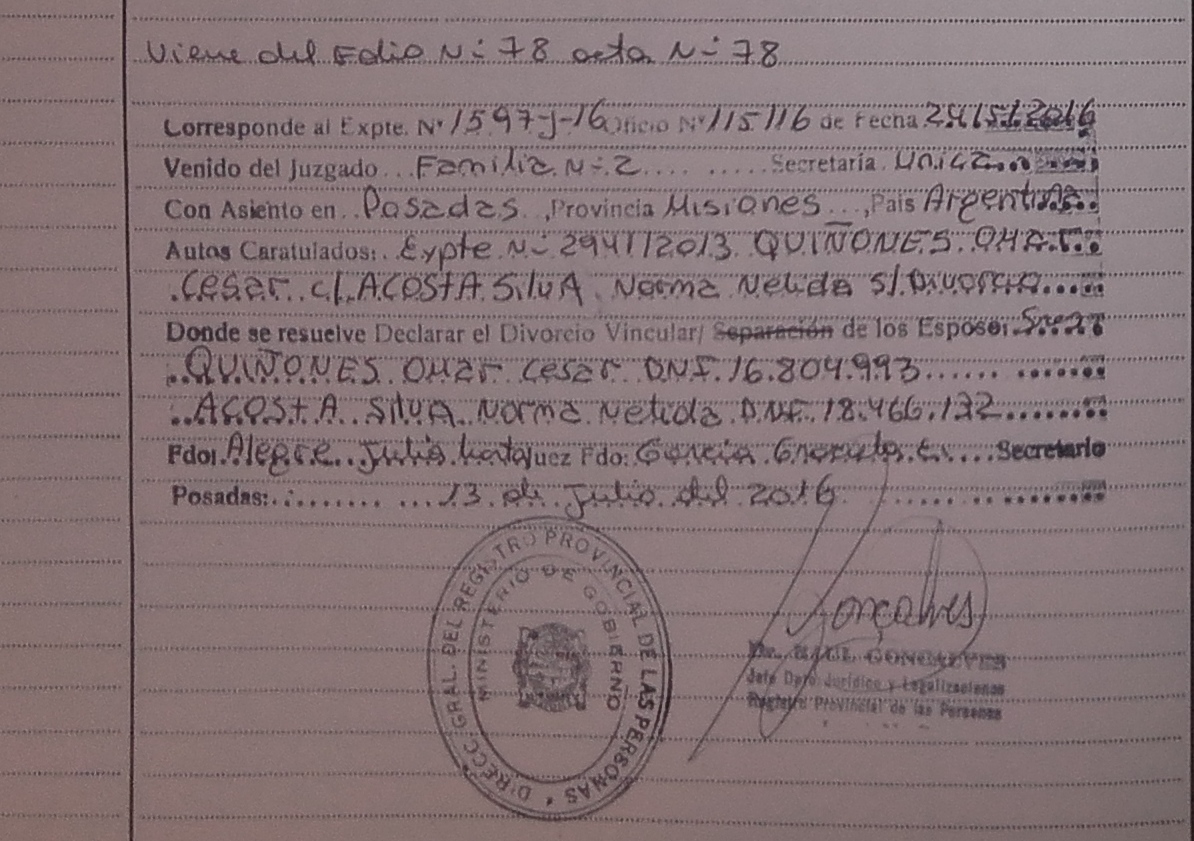 Viene del Folio N: 78 acta N: 78
Corresponde al Expte. Nº 1597-J-16 Oficio Nº 115/16 de Fecha 24/5/2016
Venido del Juzgado Familia N: 2 Secretaría Unica
Con Asiento en Posadas, Provincia Misiones, País Argentina
Autos Caratulados: Expte N: 2941/2013 QUIÑONES OMAR
Cesar c/ ACOSTA SilvA Norma Nelida s/Divorcio
Donde se resuelve Declarar el Divorcio Vincular/ Separación de los Esposos
QUIÑONES OMar Cesar DNI 16.804.993
ACOSTA SilvA Norma Nelida DNI 18.466.132
Fdo: Alegre Julio Juez Fdo: Garcia Secretario
Posadas: 13 de Julio del 2016
DIRECC. GRAL. DEL REGISTRO PROVINCIAL DE LAS PERSONAS
MINISTERIO DE GOBIERNO
Gonçalves
Dr. RAUL GONCALVES
Jefe Dpto Jurídico y Legalizaciones
Registro Provincial de las Personas